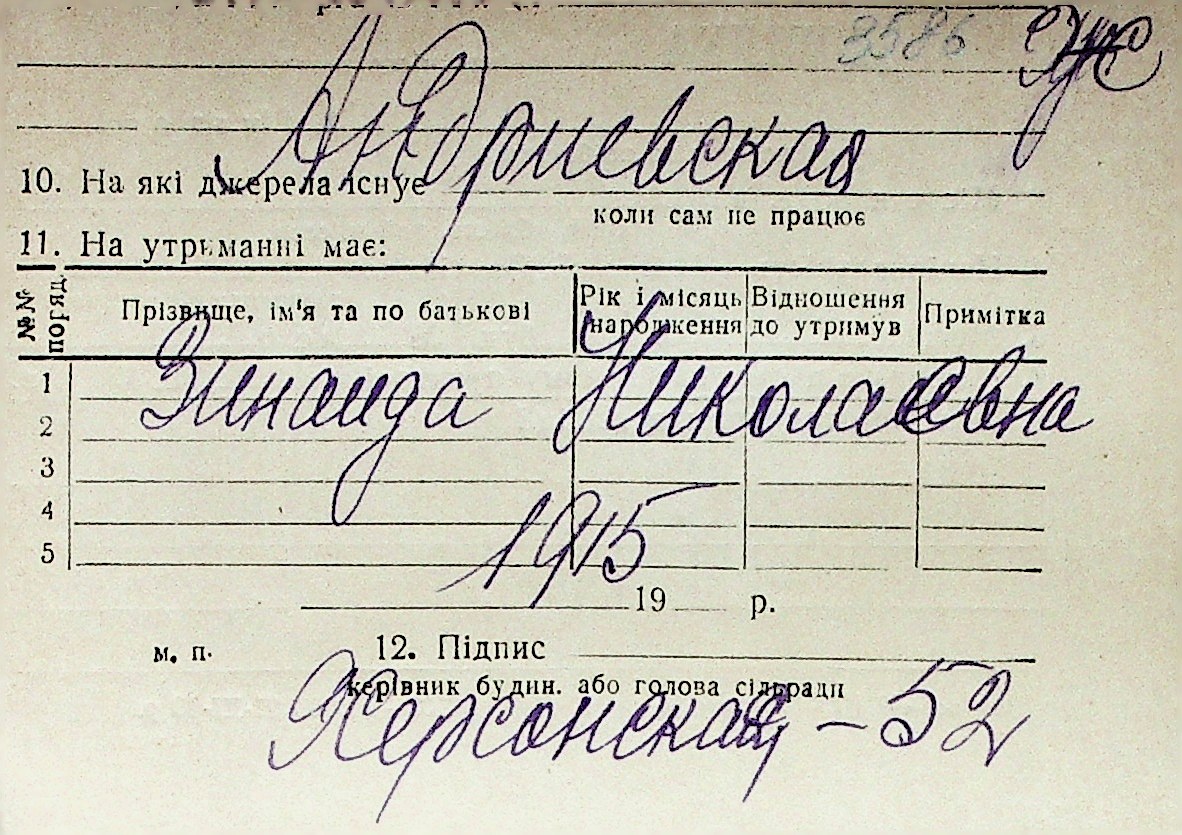 3586
Андриевская
10. На які джерела існує
коли сам не працює
11. На утриманні має:
№№ поряд
Прізвище, ім'я та по батькові
Рік і місяць народження
Відношення до утримув
Примітка
1
Зинаида Николаевна
2
3
4
1915
5
19 р.
м. п. 12. Підпис
керівник будин. або голова сільради
Херсонская – 52